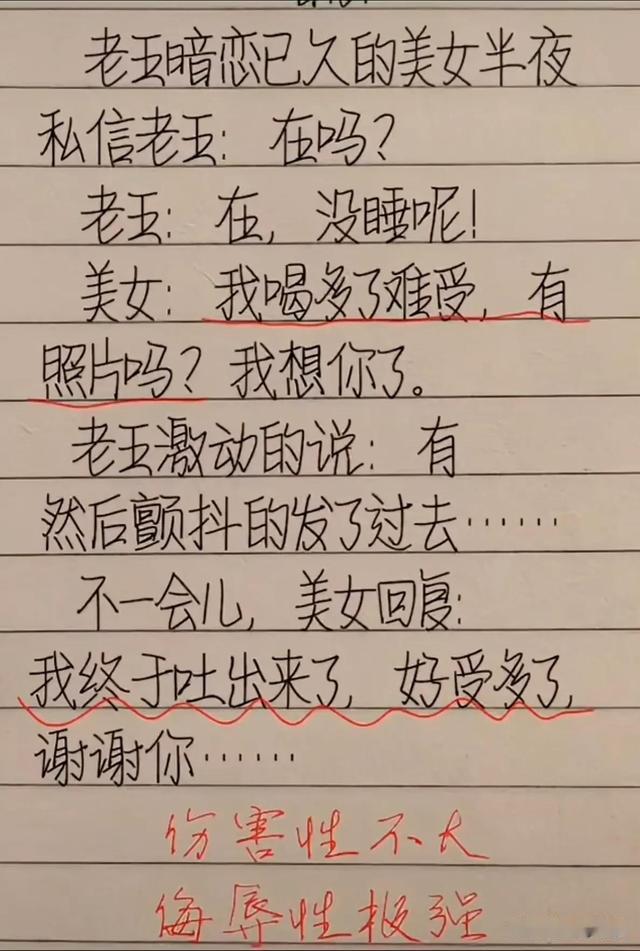 老王暗恋已久的美女半夜
私信老王：在吗？
老王：在，没睡呢！
美女：我喝多了难受，有
照片吗？我想你了。
老王激动的说：有
然后颤抖的发了过去……
不一会儿，美女回复：
我终于吐出来了，好受多了，
谢谢你……
伤害性不大
侮辱性极强